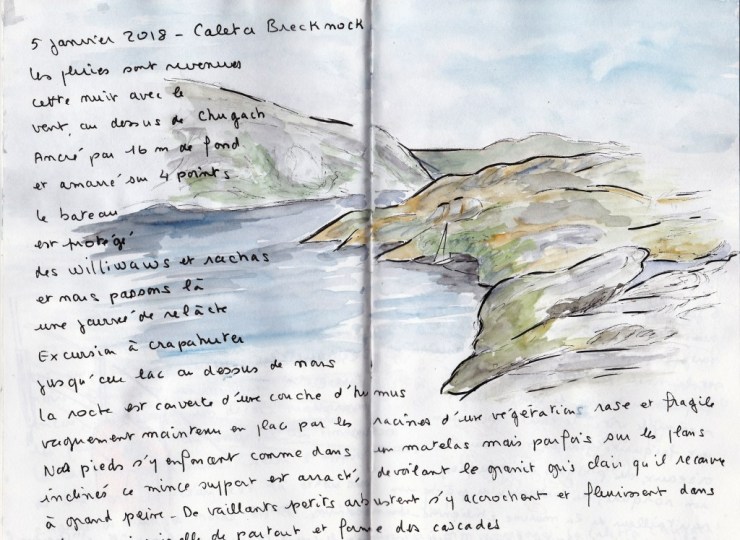 5 janvier 2018 - Caleta Brecknock
Les pluies sont revenues
cette nuit avec le
vent, au dessus de Chugach
Ancré par 16 m de fond
et amarré sur 4 points
le bateau
est protégé
des williwaws et rachas
et nous passons là
une journée de relâche
Excursion à crapahuter
jusqu'au lac au dessus de nous
la roche est couverte d'une couche d'humus
vaguement maintenu en place par les racines d'une végétation rase et fragile
Nos pieds s'y enfoncent comme dans un matelas mais parfois sur les plans
inclinés ce mince support est arraché, dévoilant le granit gris clair qu'il recouvre
à grand peine - De vaillants petits arbustent s'y accrochent et fleurissent dans
de partout et forme des cascades